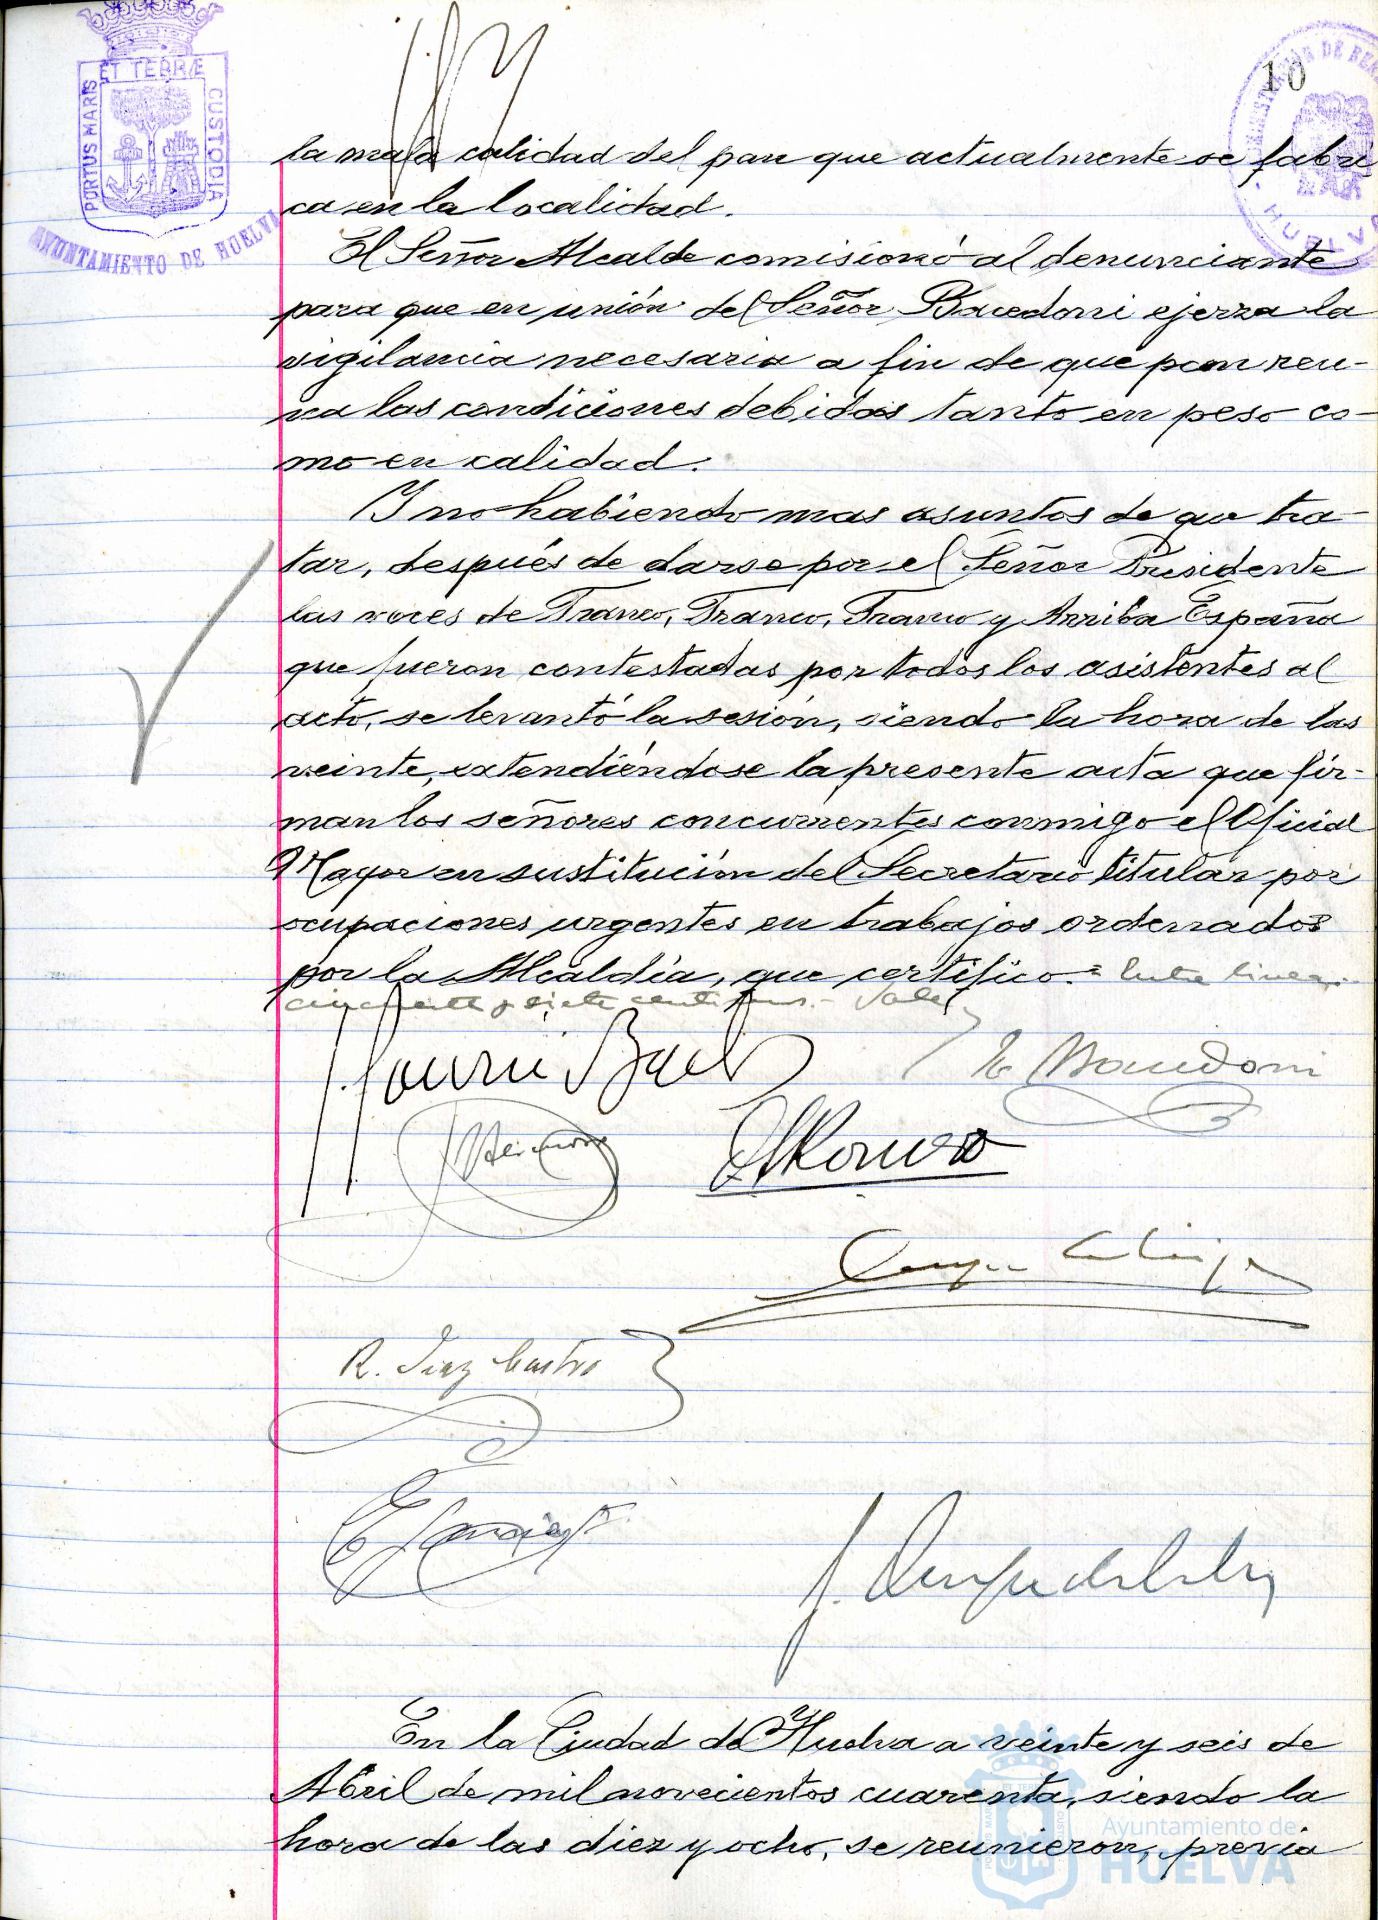 10
PORTUS MARIS ET TERRÆ CUSTODIA
AYUNTAMIENTO DE HUELVA
HUELVA
la mala calidad del pan que actualmente se fabri
ca en la localidad.
El Señor Alcalde comisionó al denunciante
para que en unión del Señor Bacedoni ejerza la
vigilancia necesaria a fin de que pan reu-
na las condiciones debidas tanto en peso co-
mo en calidad.
Y no habiendo mas asuntos de que tra-
tar, después de darse por el Señor Presidente
las voces de Franco, Franco, Franco y Arriba España
que fueron contestadas por todos los asistentes al
acto, se levantó la sesión, siendo la hora de las
veinte, extendiéndose la presente acta que fir-
man los señores concurrentes conmigo el Oficial
Mayor en sustitución del Secretario titular por
ocupaciones urgentes en trabajos ordenados
por la Alcaldía, que certifico = Entre lineas:
cincuenta y siete centimos.- Vale
R. Diaz Castro
En la Ciudad de Huelva a veinte y seis de
Abril de mil novecientos cuarenta, siendo la
hora de las diez y ocho, se reunieron, previa
Ayuntamiento de
HUELVA